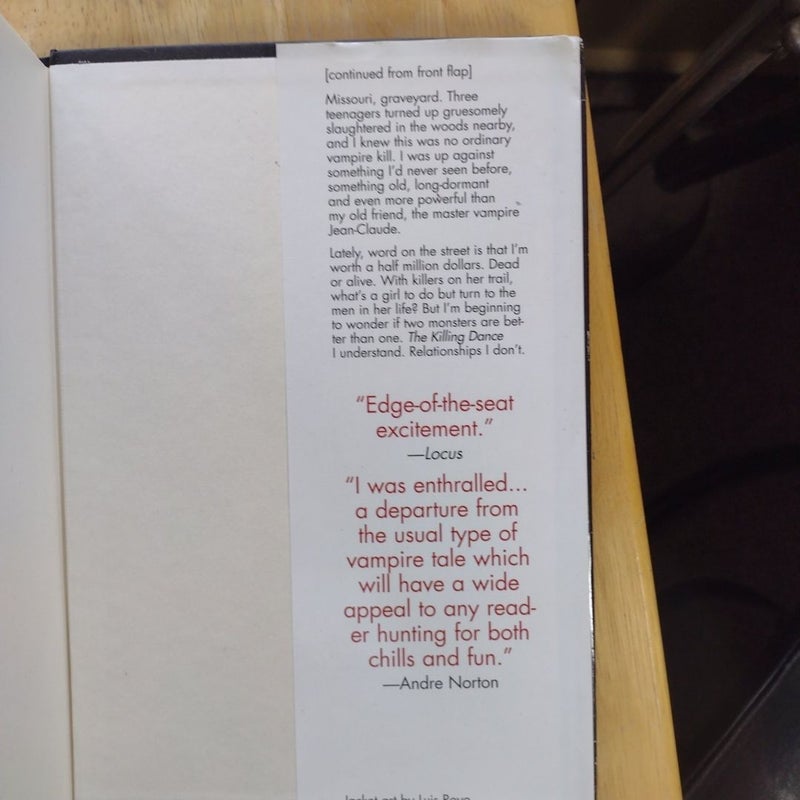 [continued from front flap]
Missouri, graveyard. Three
teenagers turned up gruesomely
slaughtered in the woods nearby,
and I knew this was no ordinary
vampire kill. I was up against
something I'd never seen before,
something old, long-dormant
and even more powerful than
my old friend, the master vampire
Jean-Claude.
Lately, word on the street is that I'm
worth a half million dollars. Dead
or alive. With killers on her trail,
what's a girl to do but turn to the
men in her life? But I'm beginning
to wonder if two monsters are bet-
ter than one. The Killing Dance
I understand. Relationships I don't.
“Edge-of-the-seat
excitement.”
—Locus
“I was enthralled...
a departure from
the usual type of
vampire tale which
will have a wide
appeal to any read-
er hunting for both
chills and fun.”
—Andre Norton
Jacket art by Luis Royo